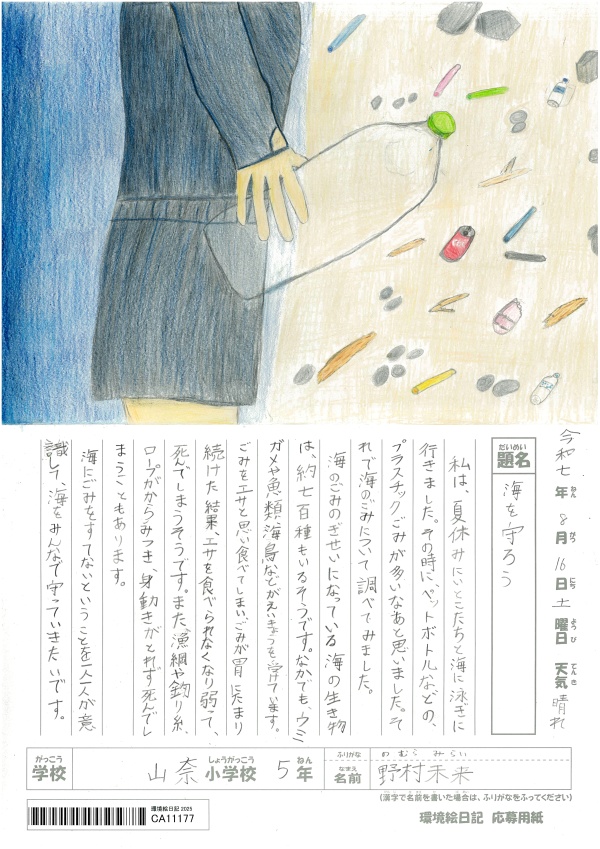 令和七年ねん8月がつ16日にち土曜日ようび 天気てんき晴れ
題名だいめい 海を守ろう
私は、夏休みにいとこたちと海に泳ぎに
行きました。その時に、ペットボトルなどの、
プラスチックごみが多いなあと思いました。そ
れで海のごみについて調べてみました。
海のごみのぎせいになっている海の生き物
は、約七百種もいるそうです。なかでも、ウミ
ガメや魚類、海鳥などがえいきょうを受けています。
ごみをエサと思い食べてしまいごみが胃にたまり
続けた結果、エサを食べられなくなり弱って、
死んでしまうそうです。また、漁網や釣り糸、
ロープがからみつき、身動きがとれず死んでし
まうこともあります。
海にごみをすてないということを一人一人が意
識して、海をみんなで守っていきたいです。
学校がっこう 山奈小学校しょうがっこう 5年ねん
ふりがな のむら みらい
名前なまえ 野村未来
(漢字で名前を書いた場合は、ふりがなをふってください)
環境絵日記 応募用紙
環境絵日記 2025
CA11177